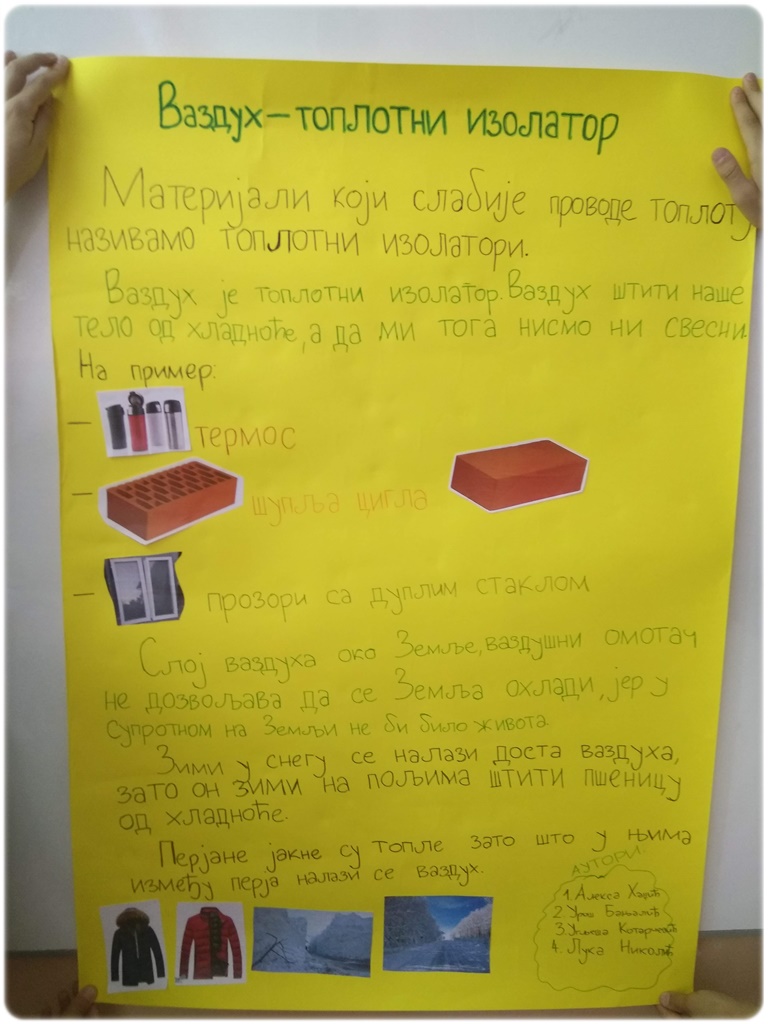 Ваздух-топлотни изолатор
Материјали који слабије проводе топлоту
називамо топлотни изолатори.
Ваздух је топлотни изолатор. Ваздух штити наше
тело од хладноће, а да ми тога нисмо ни свесни.
На пример:
– термос
– шупља цигла
– прозори са дуплим стаклом
Слој ваздуха око Земље, ваздушни омотач
не дозвољава да се Земља охлади, јер у
супротном на Земљи не би било живота.
Зими у снегу се налази доста ваздуха,
зато он зими на пољима штити пшеницу
од хладноће.
Перјане јакне су топле зато што у њима
између перја налази се ваздух.
АУТОРИ:
1. Алекса
2. Урош
3.
4. Лука Николић